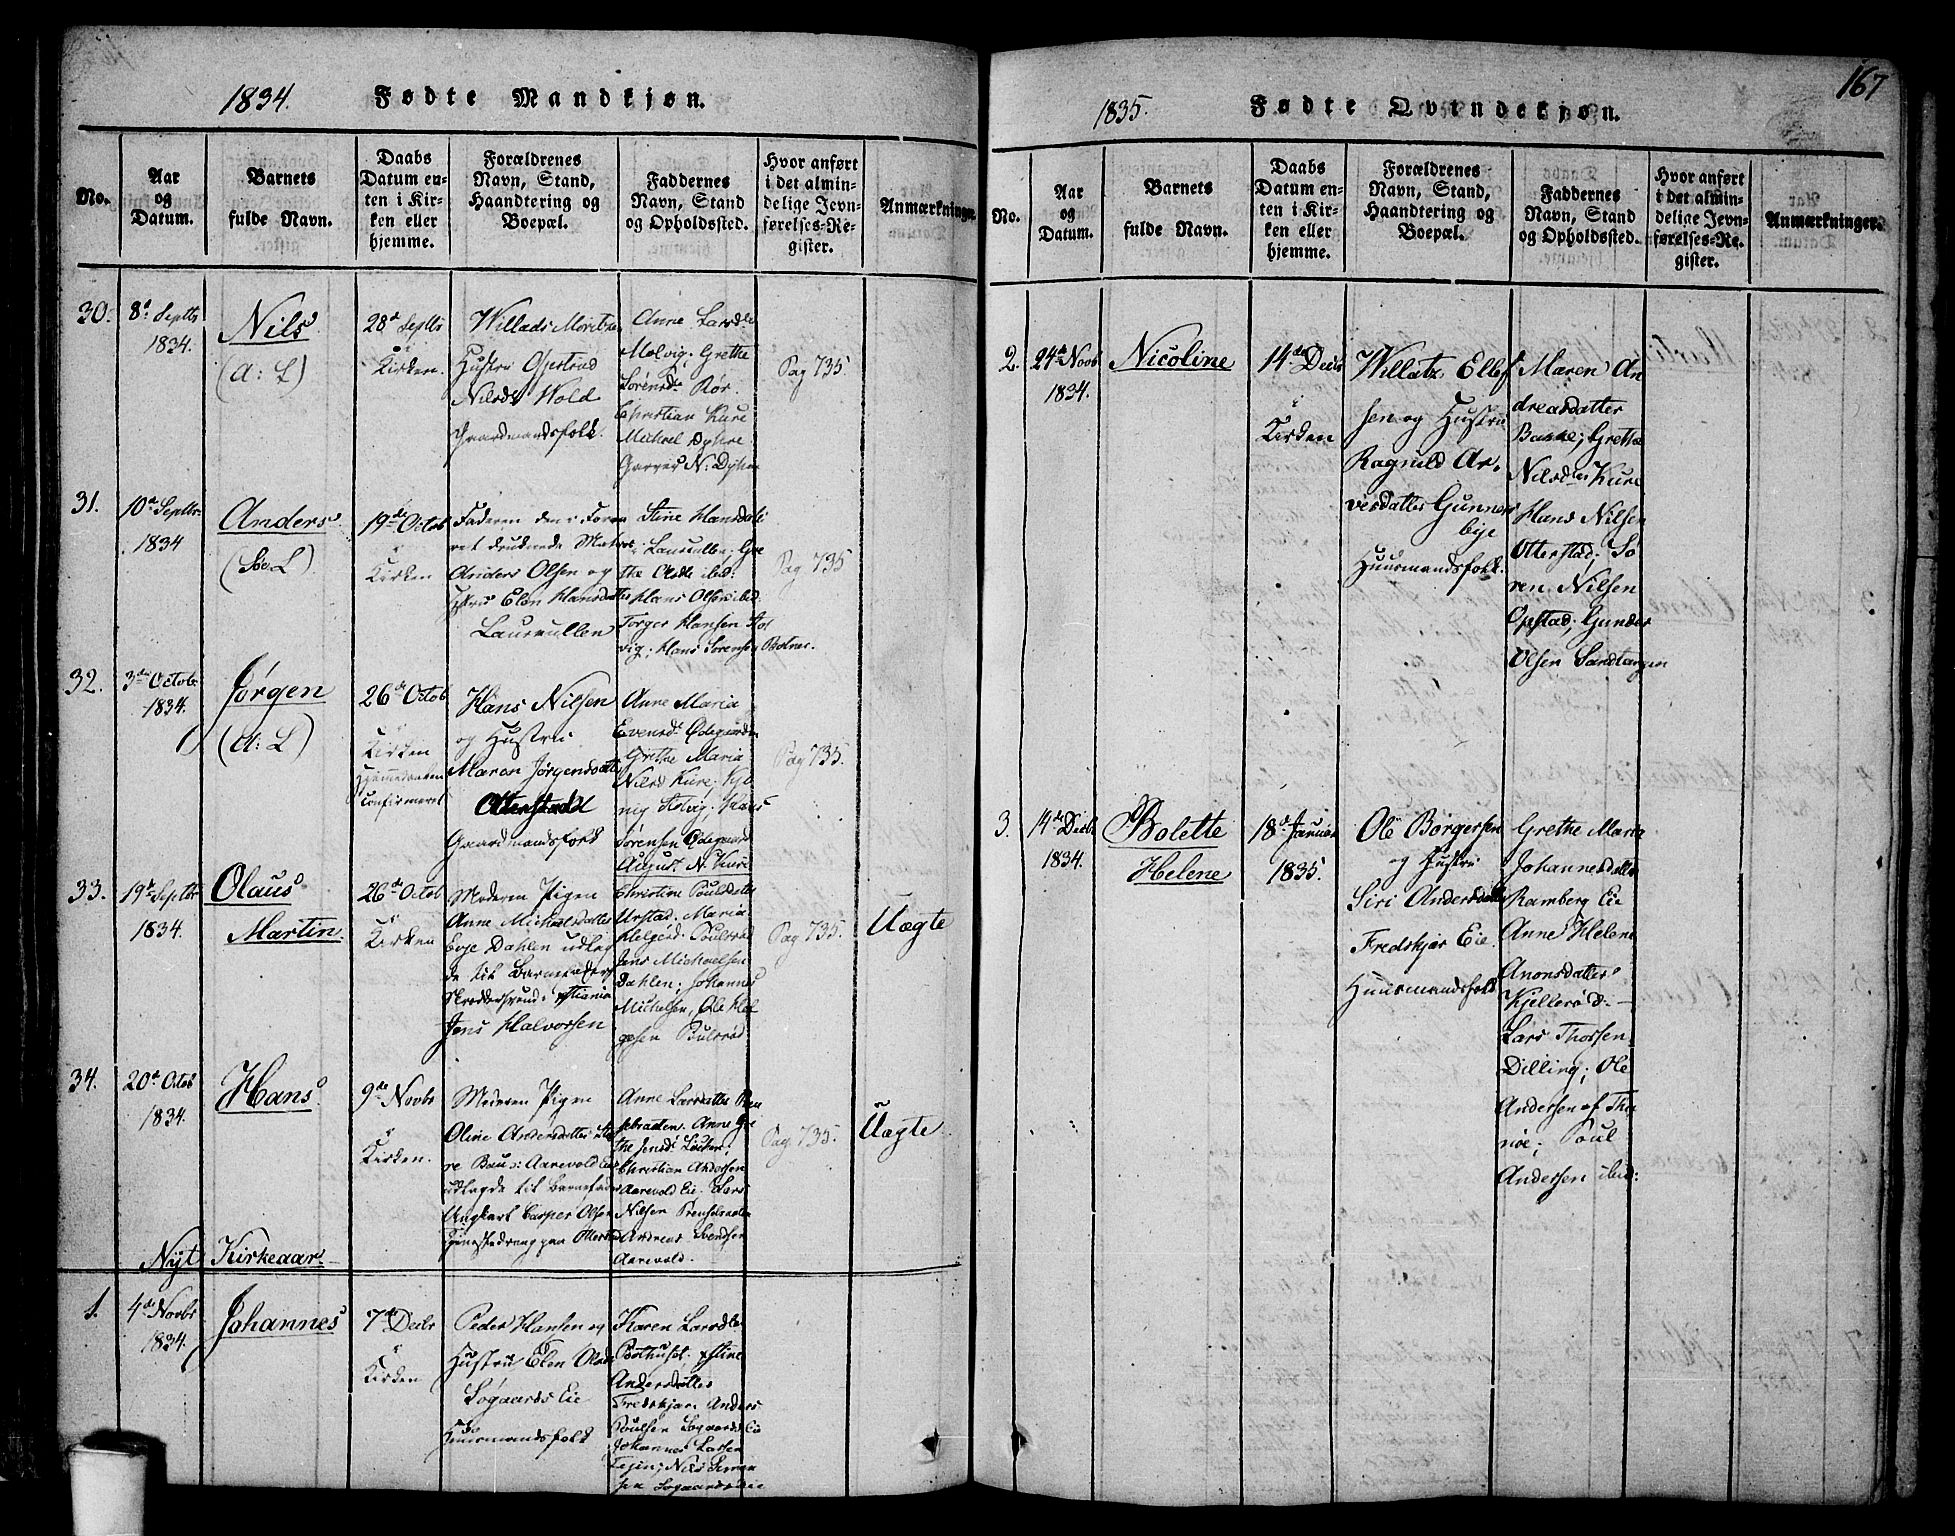 1834. Fødte Mandkjøn.
No.
Aar
og
Datum.
Barnets
fulde Navn.
Daabs
Datum en-
ten i Kir-
ken eller
hjemme.
Forældrenes
Navn, Stand,
Haandtering og
Boepæl.
Faddernes
Navn, Stand
og Opholdssted.
Hvor anført
i det almin-
delige Jevn-
førelses-Re-
gister.
Anmærkninger
30.
8de Septbr
1834.
Nils
(A: L)
28de Septbr
i
Kirken.
Willads Moritzen
Hustru Gjertrud
Nilsdr Wold
Gaardmandsfolk.
Anne Larsdtr
Molvig. Grethe
Sørensdr Rør.
Christian Kure
Michael Dyhre
N: Dyhre
Pag 735.
31.
10de Septbr
1834
Anders
19de Octob
i
Kirken
Faderen den i Foraa
ret druknede Matros
Anders Olsen og
Hustru Elen Hansdatter
Laurkullen
Stine Hansdtr
Laurkullen; Gre
the ibid:
Hans Olsen ibid:
Torger Hansen
vig; Hans Sørensen Botner.
Pag 735
32.
3de Octob
1834.
Jørgen
(A: L)
26de Octob
i
Kirken
Hjemmedaaben
Confirmeret
Hans Nilsen
og Hustru
Maren Jørgensdatter
Otterstadd
Gaardmandsfolk
Anne Maria
Evensdr Ødegaarden
Grethe Maria
Nilsd Kure;
Hans
Sørensen Ødegaard
August N. Kure
Pag 735.
33.
19de Septbr
1834.
Olaus
Martin
26de Octob
i
Kirken
Moderen Pigen
Anne Michaelsdatter
Eie Dahlen udlag
de til Barnefader
Skræddersvend i Xstiania
Jens Halvorsen
Christine Poulsdatter
Urstad. Maria
Helgesd. Poulsrød
Jens Michaelsen
Dahlen; Johannes
Michelsen, Ole Hel
gesen Poulsrød
Pag 735.
Uægte
34.
20de Octob
1834.
Hans
9de Novbr
i
Kirken.
Moderen Pigen
Oline Andersdatter
Aarevold Eie
udlagde til Barnefader
Ungkarl Casper Olsen
Tjenestedreng paa Otterstad
Anne Larsdatter
Anne Gre
the Jensdr
Christian Andersen
Aarevold Eie. Lars
Nilsen
Andreas Svendsen
Aarevold.
Pag. 735.
Uægte
Nyt Kirkeaar
1.
4de Novbr
1834.
Johannes
7de Decbr
i
Kirken
Peder Hansen og
Hustru Elen Olsdr
Søgaards Eie
Huusmandsfolk
Karen Larsdtr
Stine
Andersdatter
Fredskjær. Anders
Poulsen Søgaards Eie
Johannes Larsen
Nils Simon
sen Søgaards Eie
167
1835. Fødte Qvindekjøn.
No.
Aar
og
Datum.
Barnets
fulde Navn.
Daabs
Datum en-
ten i Kir-
ken eller
hjemme.
Forældrenes
Navn, Stand,
Haandtering og
Boepæl.
Faddernes
Navn, Stand
og Opholdssted.
Hvor anført
i det almin-
delige Jevn-
førelses-Re-
gister.
Anmærkninger.
2.
24de Novb
1834.
Nicoline
14de Decbr
i
Kirken
Willatz Ellef
sen og Hustru
Ragnild Ar-
vesdatter Gunners
bye
Huusmandsfolk.
Maren An
dreasdatter
Bakke; Grethe
Nilsdtr Kure
Hans Nilsen
Otterstad; Sø
ren Nilsen
Opstad; Gunder
Olsen Sandtangen
3.
14de Decbr
1834.
Bolette
Helene
18de Januar
1835.
Ole Børgersen
og Hustru
Siri Andersdatter
Fredskjær Eie.
Huusmandsfolk
Grethe Maria
Johannesdatter
Ramberg Eie
Anne Helene
Anonsdatter
Kjellerød.
Lars Thorsen
Dilling; Ole
Andersen af Tho
røe; Poul
Andersen ibid: